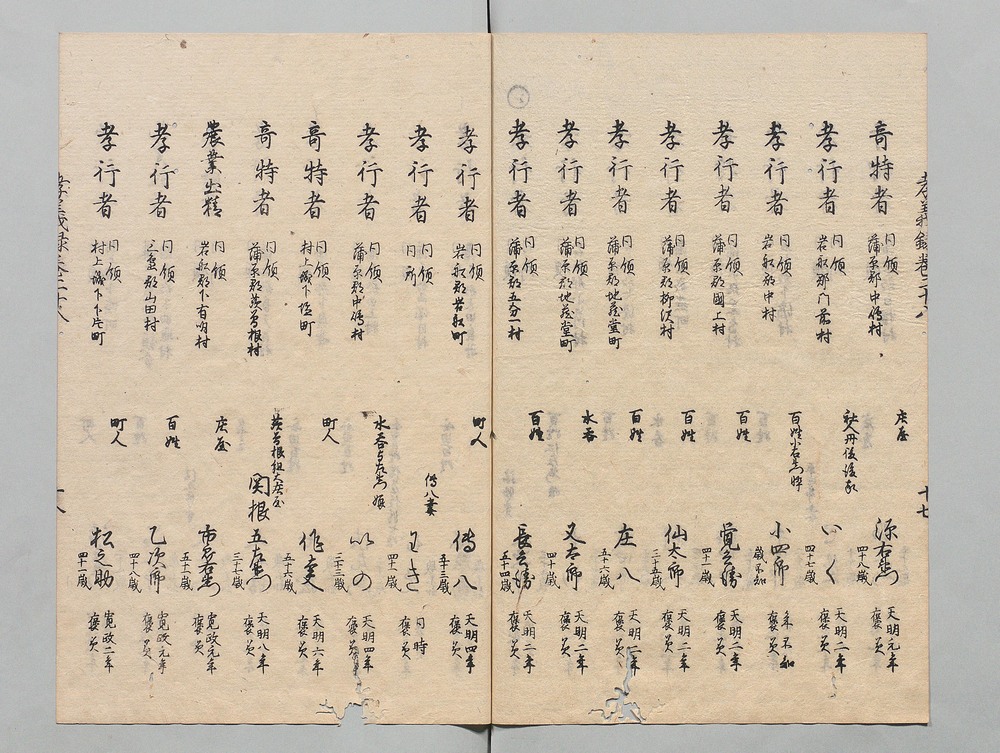 孝義録巻二十八
十七
奇特者
同領
蒲原郡中條村
庄屋
源右衛門
四十八歳
天明元年
褒美
孝行者
同領
岩船郡門前村
四十七歳
天明二年
褒美
孝行者
同領
岩船郡中村
百姓
小四郎
歳不知
年不知
褒美
孝行者
同領
蒲原郡國上村
百姓
覚兵衛
四十一歳
天明二年
褒美
孝行者
同領
蒲原郡柳沢村
百姓
仙太郎
三十五歳
天明二年
褒美
孝行者
同領
蒲原郡地蔵堂町
百姓
庄八
五十六歳
天明二年
褒美
孝行者
同領
蒲原郡地蔵堂町
水呑
又右郎
四十歳
天明二年
褒美
孝行者
同領
蒲原郡五分一村
百姓
長兵衛
五十四歳
天明二年
褒美
孝行者
同領
岩船郡岩船町
町人
傳八
五十三歳
天明四年
褒美
孝行者
同領
同所
傳八妻
とき
四十三歳
同時
褒美
孝行者
同領
蒲原郡中條村
水呑与左衛門娘
いの
三十三歳
天明四年
褒美
奇特者
同領
村上城下塩町
町人
作蔵
五十六歳
天明六年
褒美
奇特者
同領
蒲原郡茨曽根村
茨曽根組大庄屋
関根
五左衛門
三十六歳
天明八年
褒美
農業出精
同領
岩船郡下有明村
庄屋
市郎右衛門
五十二歳
寛政元年
褒美
孝行者
同領
三島郡山田村
百姓
乙次郎
四十八歳
寛政元年
褒美
孝行者
同領
村上城下片町
町人
松之助
四十一歳
寛政二年
褒美
孝義録巻二十八
十八